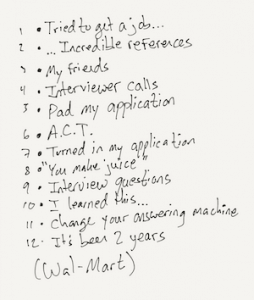 1 • Tried to get a job...
2 • ... Incredible references
3 • My friends
4 • Interviewer calls
5 • Pad my application
6 • A.C.T.
7 • Turned in my application
8 • "You make juice"
9 • Interview questions
10 • I learned this...
11 • Change your answering machine
12 • It's been 2 years
(Wal-Mart)